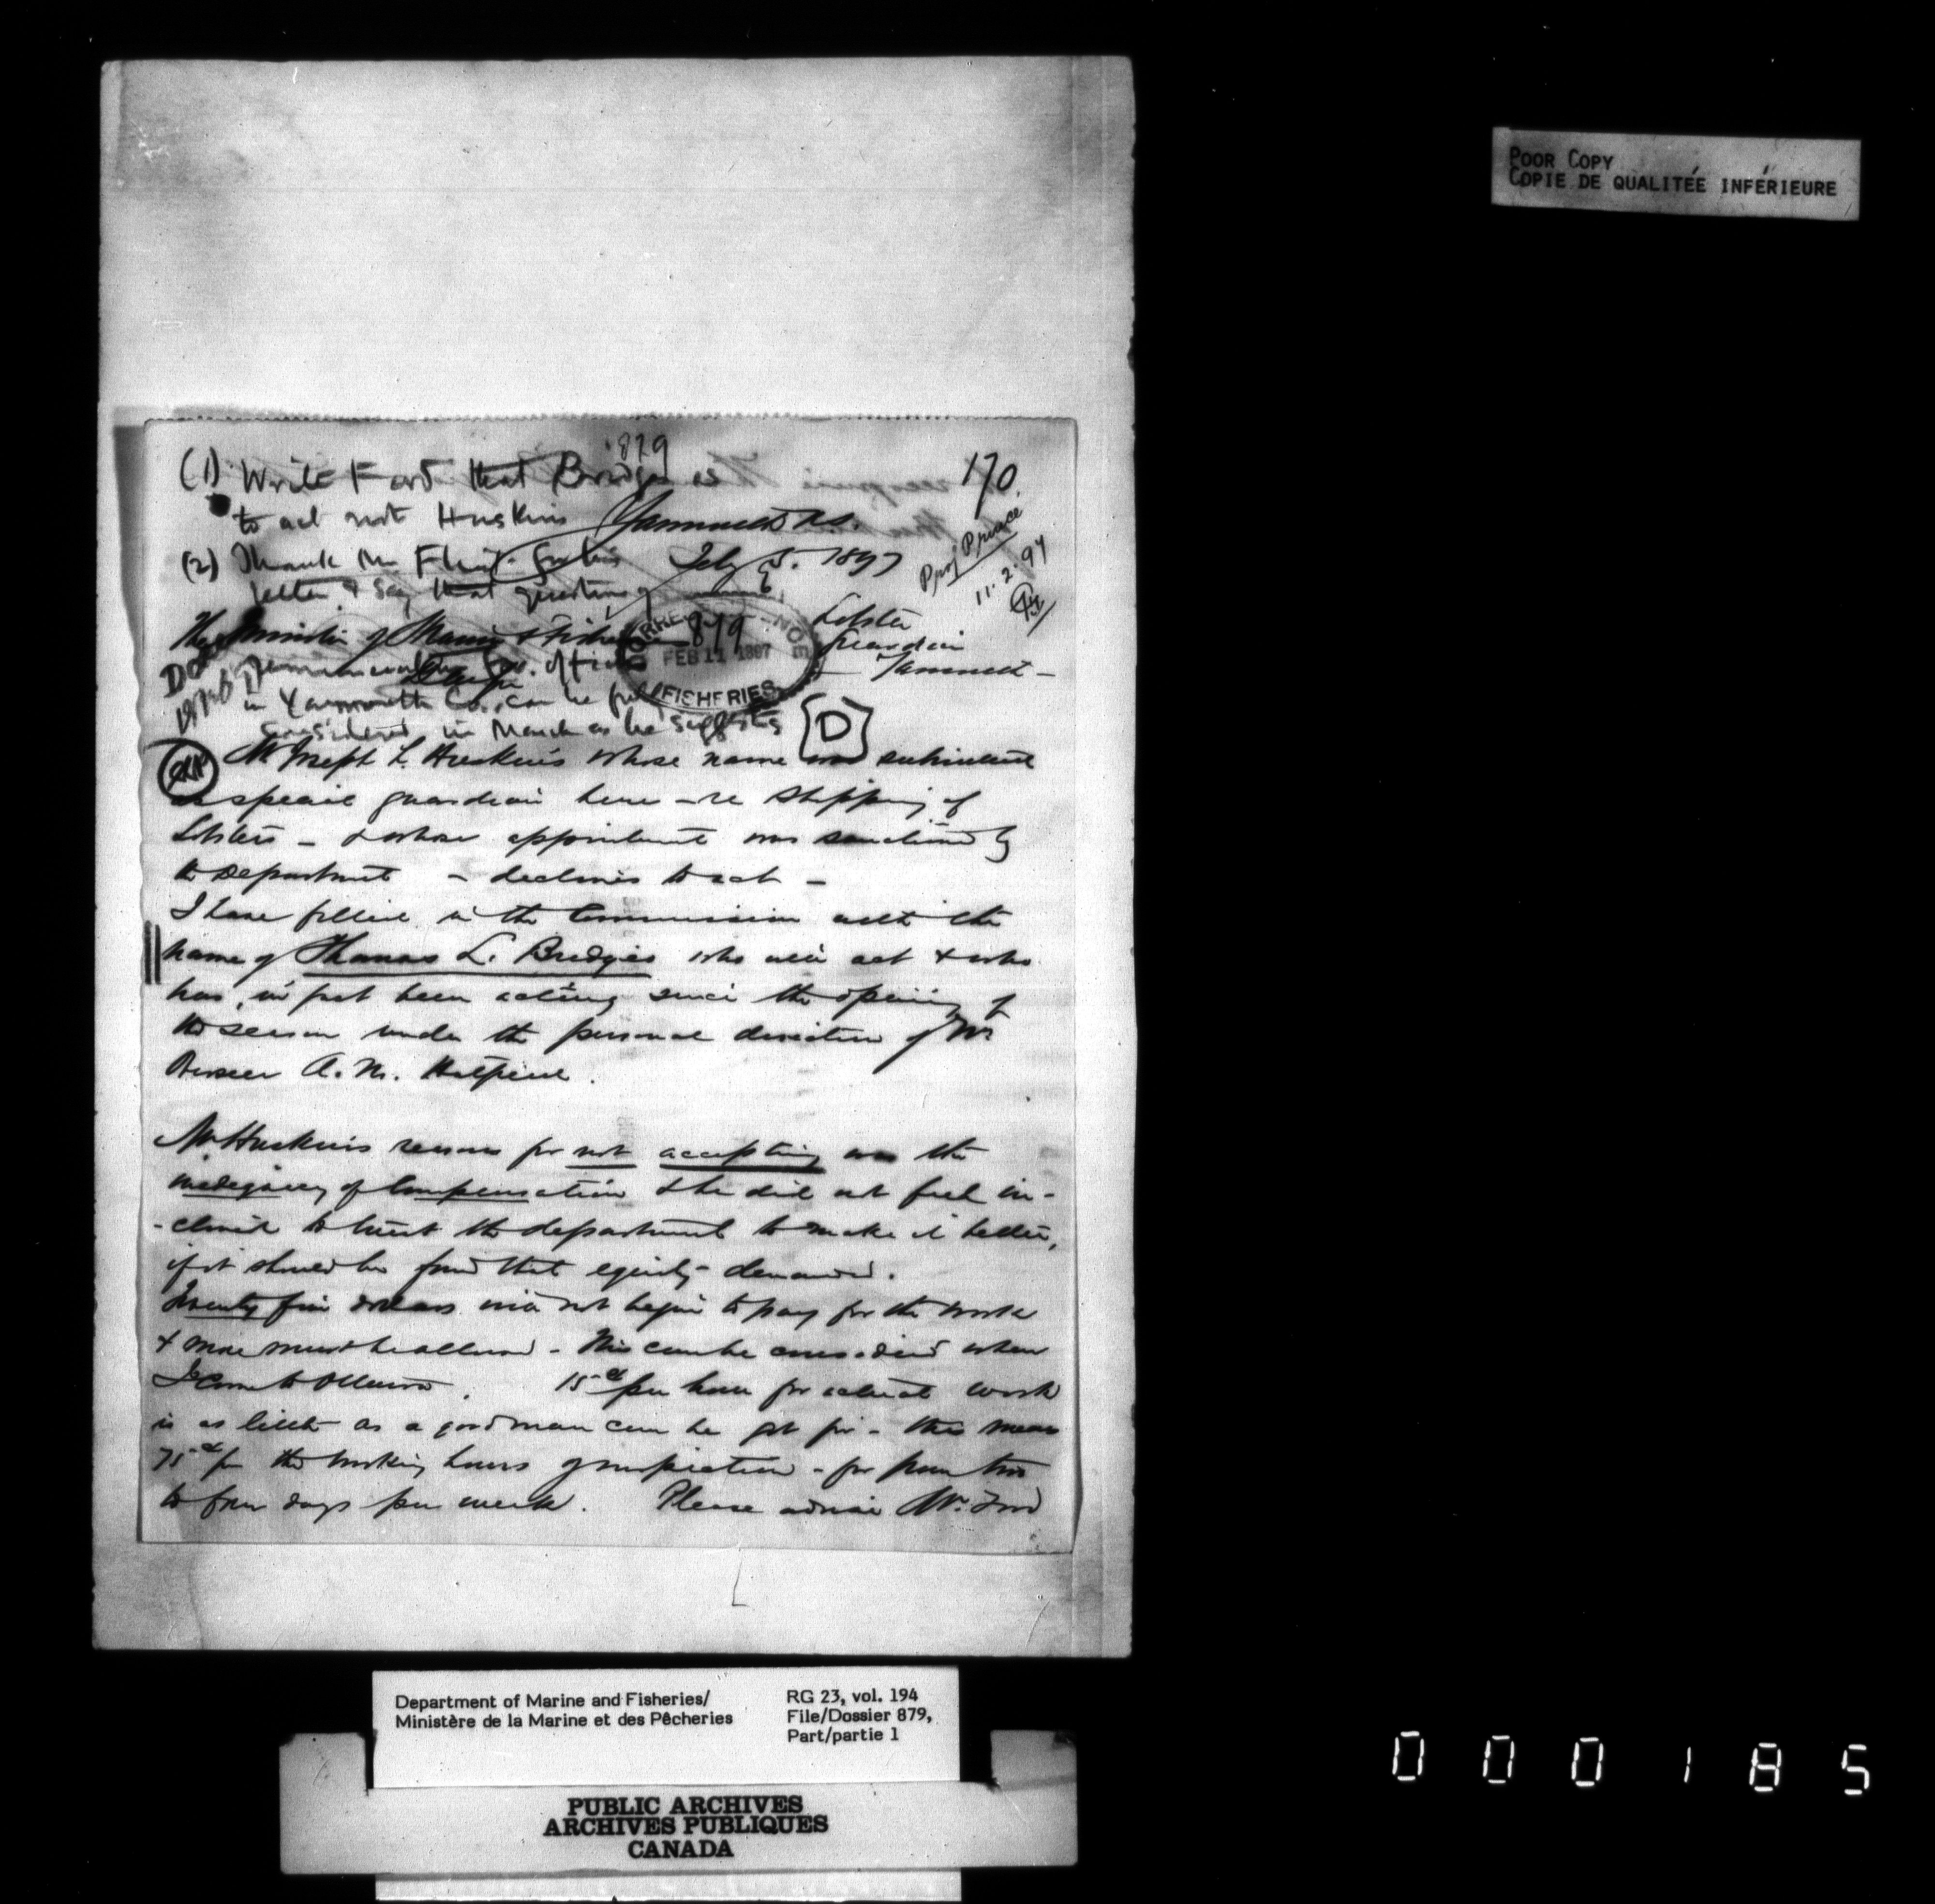 POOR COPY
COPIE DE QUALITÉE INFÉRIEURE
879
170
(1) Write Ford that Bridges is
to act not Huskins
Yarmouth N.S.
Feby 5. 1897
Prof Prince
11.2.97
(2) Thank Mr Flint for his
letter & say that question of
The Minister of Marine & Fisheries
CORRE NO
879
FEB 11 1897
FISHERIES
Lobster
Guardian
Yarmouth -
in Yarmouth Co., can be fully
considered in March as he suggests
D
Mr Joseph L. Huskins whose name was submitted
as special guardian here - re shipping of
Lobsters - & whose appointment was sanctioned by
the Department - declines to act -
I have filled in the Commission with the
name of Thomas L. Bridges who will act & who
has, in fact been acting since the opening of
the season under the personal direction of
Overseer A. M. Hatfield.
Mr Huskins reasons for not accepting was the
inadequacy of Compensation & he did not feel in-
-clined to trust the department to make it better,
if it should be found that equity demanded.
Twenty five dollars will not begin to pay for the work
& more must be allowed - This can be considered when
I come to Ottawa. 15 cts per hour for actual work
is as little as a good man can be got for - this means
75 cts for the working hours of inspection - for from two
to four days per week. Please advise Mr. Ford
Department of Marine and Fisheries/
Ministère de la Marine et des Pêcheries
RG 23, vol. 194
File/Dossier 879,
Part/partie 1
PUBLIC ARCHIVES
ARCHIVES PUBLIQUES
CANADA
000185